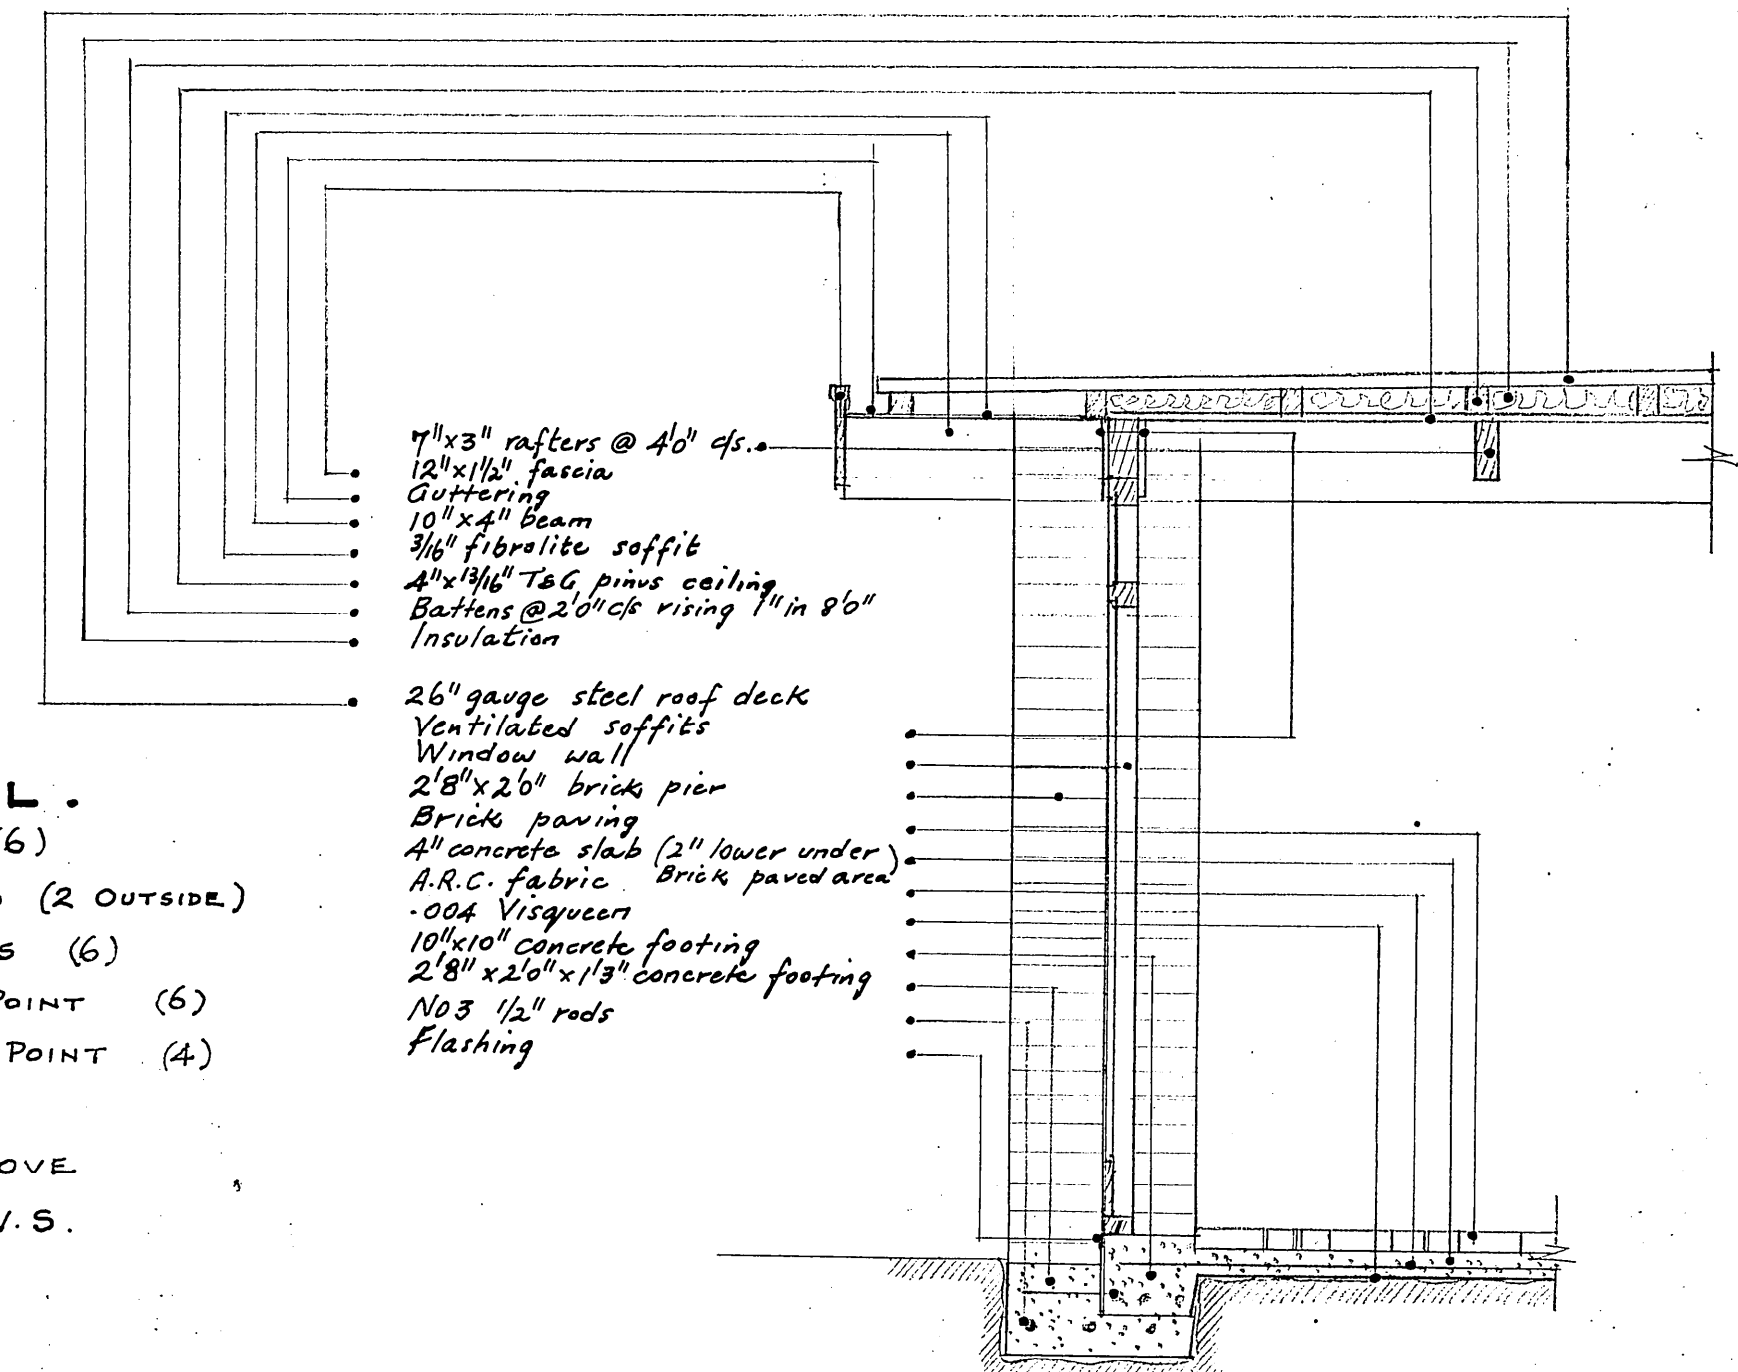 7"x3" rafters @ 4'0" c/s.
12"x1½" fascia
Guttering
10"x4" beam
3/16" fibrolite soffit
4"x13/16" T&G pinus ceiling
Battens @ 2'0" c/s rising 1" in 8'0"
Insulation
26" gauge steel roof deck
Ventilated soffits
Window wall
2'8"x2'0" brick pier
Brick paving
4" concrete slab (2" lower under)
A.R.C. fabric Brick paved area
.004 Visqueen
10"x10" concrete footing
2'8"x2'0"x1'3" concrete footing
NO3 1/2" rods
Flashing
L.
6)
(2 OUTSIDE)
S (6)
POINT (6)
POINT (4)
OVE
V.S.